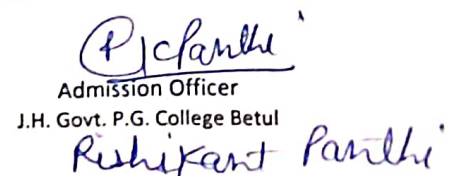 Admission Officer
J.H. Govt. P.G. College Betul
Rishikant Panthi